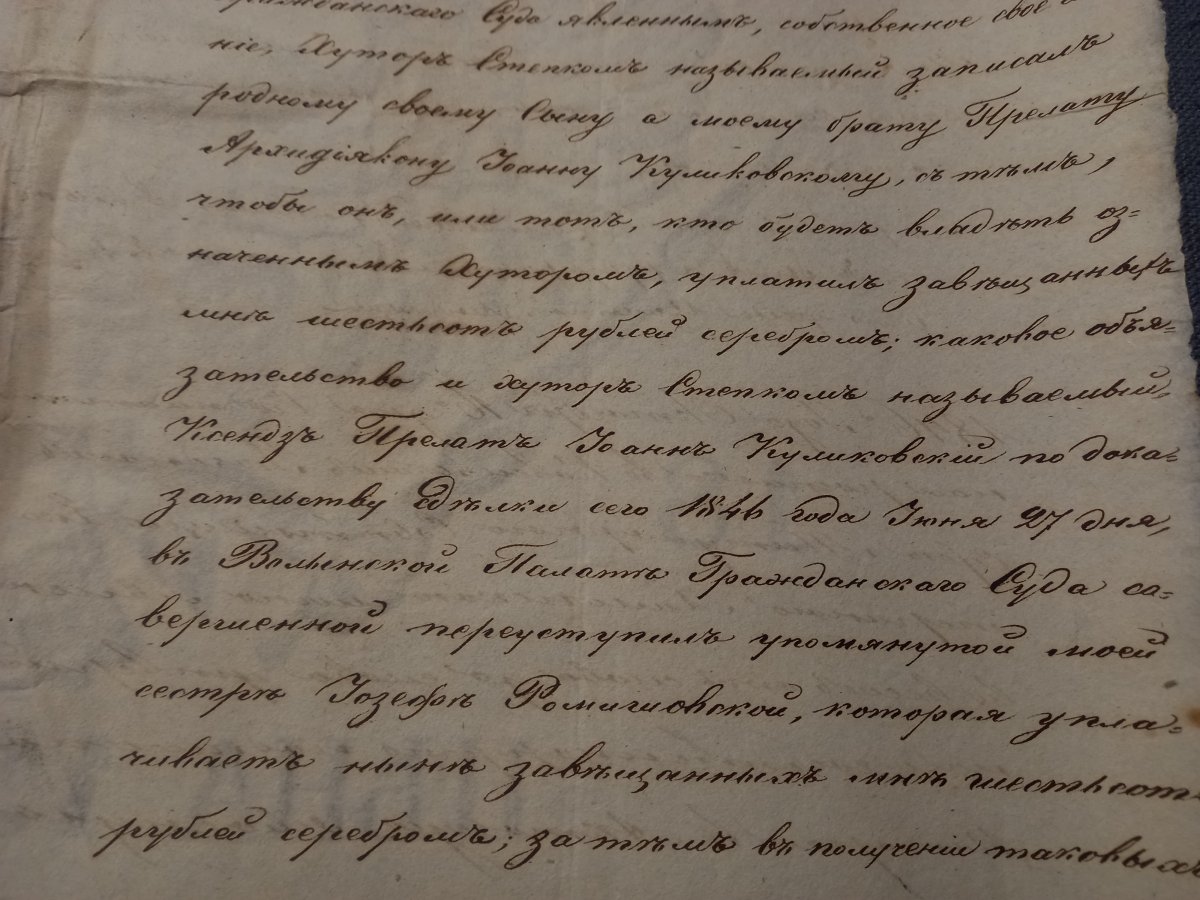 гражданскаго Суда явленнымъ, собственное свое
ніе, Хуторъ Степкомъ называемый записалъ
родному своему Сыну а моему брату Прелату
Архидіякону Іоанну Куликовскому, съ тѣмъ,
чтобы онъ, или тотъ, кто будетъ владѣть оз=
наченнымъ Хуторомъ, уплатилъ завѣщанныхъ
мнѣ шестьсотъ рублей серебромъ; каковое обья=
зательство и хуторъ Степкомъ называемый,
Ксендзъ Прелатъ Іоаннъ Куликовскій по дока=
зательству Сдѣлки сего 1846 года Іюня 27 дня,
въ Волынской Палатѣ Гражданскаго Суда са=
вершенной переуступилъ упомянутой моей
сестрѣ Іозефѣ Ромишовской, которая упла=
чиваетъ нынѣ завѣщанныхъ мнѣ шестьсот
рублей серебромъ; за тѣмъ въ полученіи таковыхъ